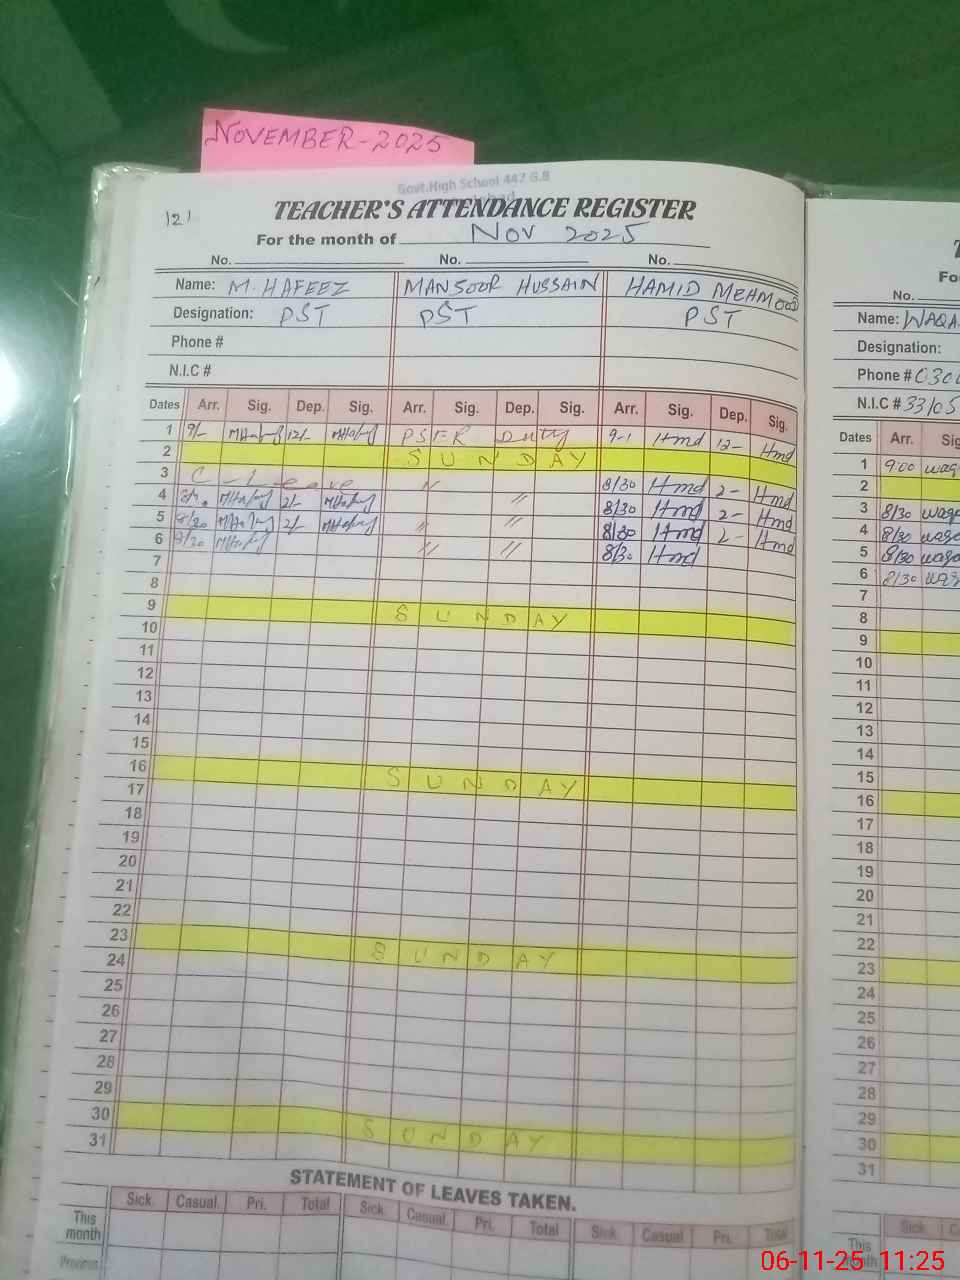 NOVEMBER-2025
Govt.High School 447 G.B
121
TEACHER'S ATTENDANCE REGISTER
For the month of Nov 2025
No. No. No.
Name: M. HAFEEZ MANSOOR HUSSAIN HAMID MEHMOOD
Designation: PST PST PST
Phone #
N.I.C #
Dates Arr. Sig. Dep. Sig. Arr. Sig. Dep. Sig. Arr. Sig. Dep. Sig.
1 9/- MHafeez 12/- MHafeez PSER Duty 9-1 Hmd 12- Hmd
2 SUNDAY
3 C - Leave " 8/30 Hmd 2- Hmd
4 MHafeez 2/- MHafeez " 8/30 Hmd 2- Hmd
5 8/30 MHafeez 2/- MHafeez " " 8/30 Hmd 2- Hmd
6 8/30 MHafeez " " 8/30 Hmd
7
8
9 SUNDAY
10
11
12
13
14
15
16 SUNDAY
17
18
19
20
21
22
23 SUNDAY
24
25
26
27
28
29
30 SUNDAY
31
STATEMENT OF LEAVES TAKEN.
Sick. Casual. Pri. Total Sick. Casual. Pri. Total Sick Casual Pri. Total
This month
Previous
Fo
No.
Name: WAQA
Designation:
Phone # 030
N.I.C # 33105
Dates Arr. Sig
1 9:00 waq
2
3 8/30 waqa
4 8/30 waqa
5 8/30 waqa
6 8/30 waq
7
8
9
10
11
12
13
14
15
16
17
18
19
20
21
22
23
24
25
26
27
28
29
30
31
Sick
This month
06-11-25 11:25